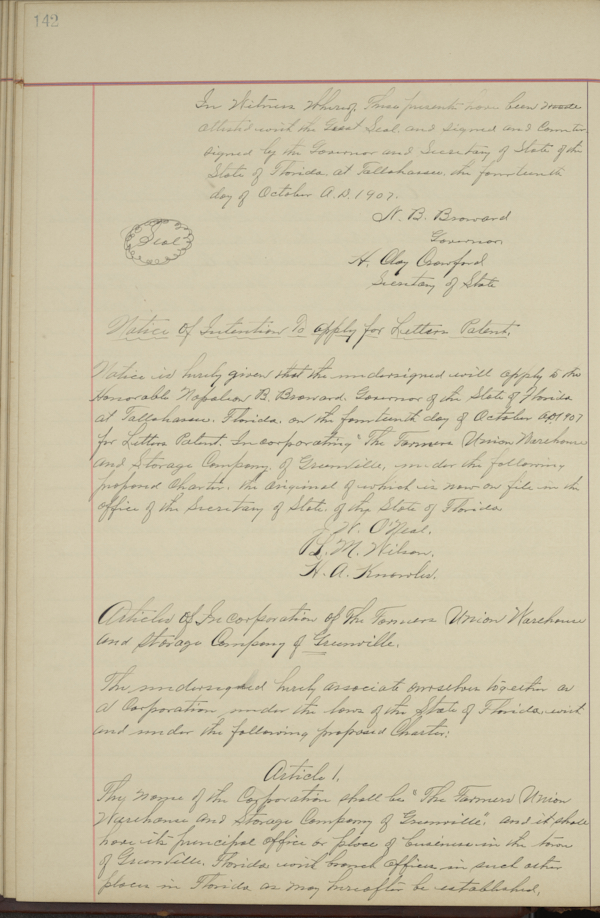 142
In Witness Whereof, These presents have been made
attested with the Great Seal, and signed and Counter-
signed by the Governor and Secretary of State of the
State of Florida at Tallahassee, the fourteenth
day of October A.D. 1907.
N. B. Broward
Governor.
Seal
H. Clay Crawford.
Secretary of State
Notice of Intention To apply for Letters Patent.
Notice is hereby given that the undersigned will apply to the
Honorable Napoleon B. Broward. Governor of the State of Florida
at Tallahassee. Florida. on the fourteenth day of October A.D. 1907
for Letters Patent. Incorporating "The Farmers Union Warehouse
and Storage Company of Greenville, under the following
proposed Charter. the original of which is now on file in the
office of the Secretary of State. of the State of Florida
W. O'Neal.
L. M. Wilson.
H. A. Knowles.
Articles of Incorporation of The Farmers Union Warehouse
and Storage Company of Greenville.
The undersigned hereby associate ourselves together as
a Corporation, under the laws of the State of Florida, with
and under the following proposed Charter:
Article 1.
The name of the Corporation shall be "The Farmers Union
Warehouse and Storage Company of Greenville", and it shall
have its principal office or place of business in the town
of Greenville, Florida with branch offices in such other
places in Florida as may hereafter be established.